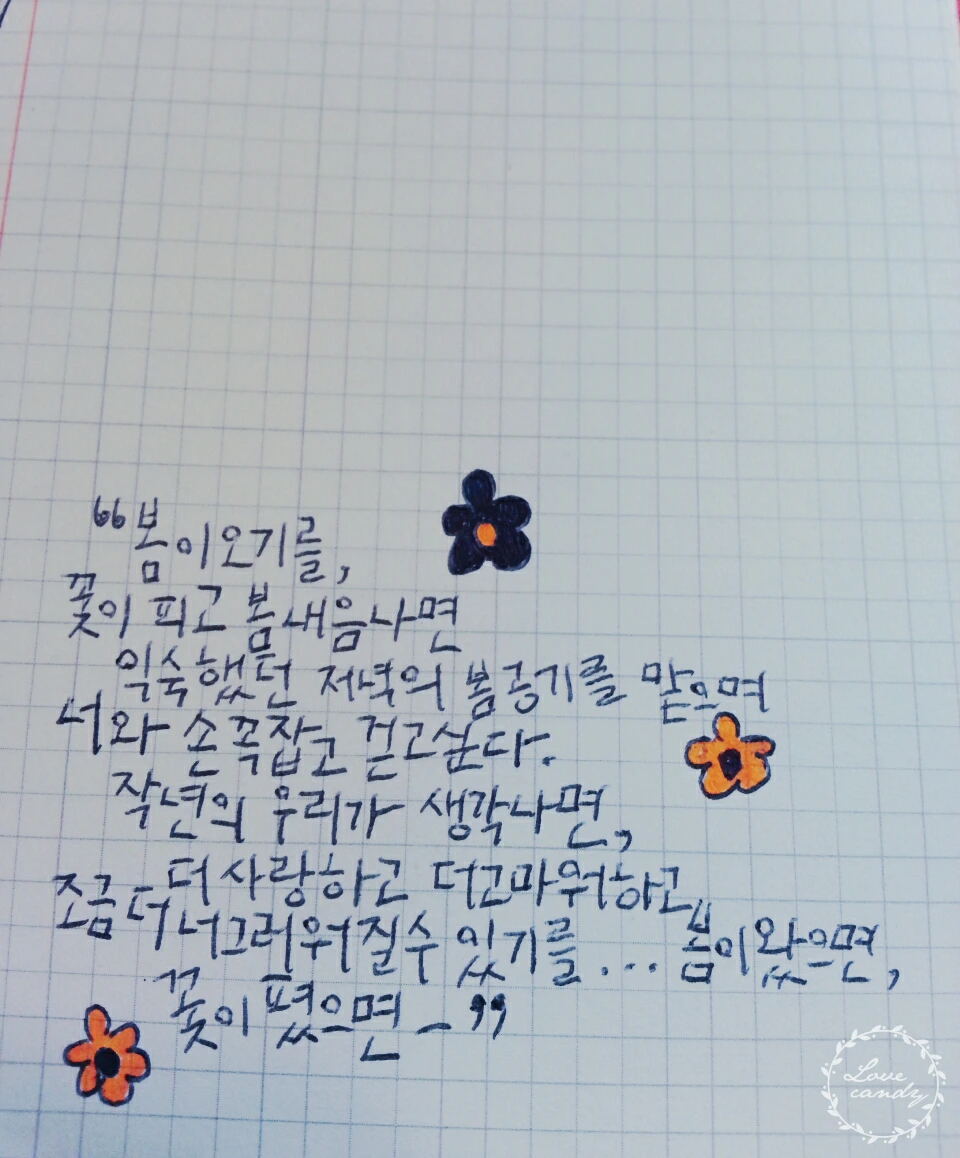 “봄이오기를,
꽃이 피고 봄내음나면
익숙했던 저녁의 봄공기를 맡으며
너와 손 꼭잡고 걷고싶다.
작년의 우리가 생각나면,
더 사랑하고 더고마워하고,
조금 더 너그러워질수 있기를... 봄이왔으면,
꽃이 폈으면 _”
Love
candy